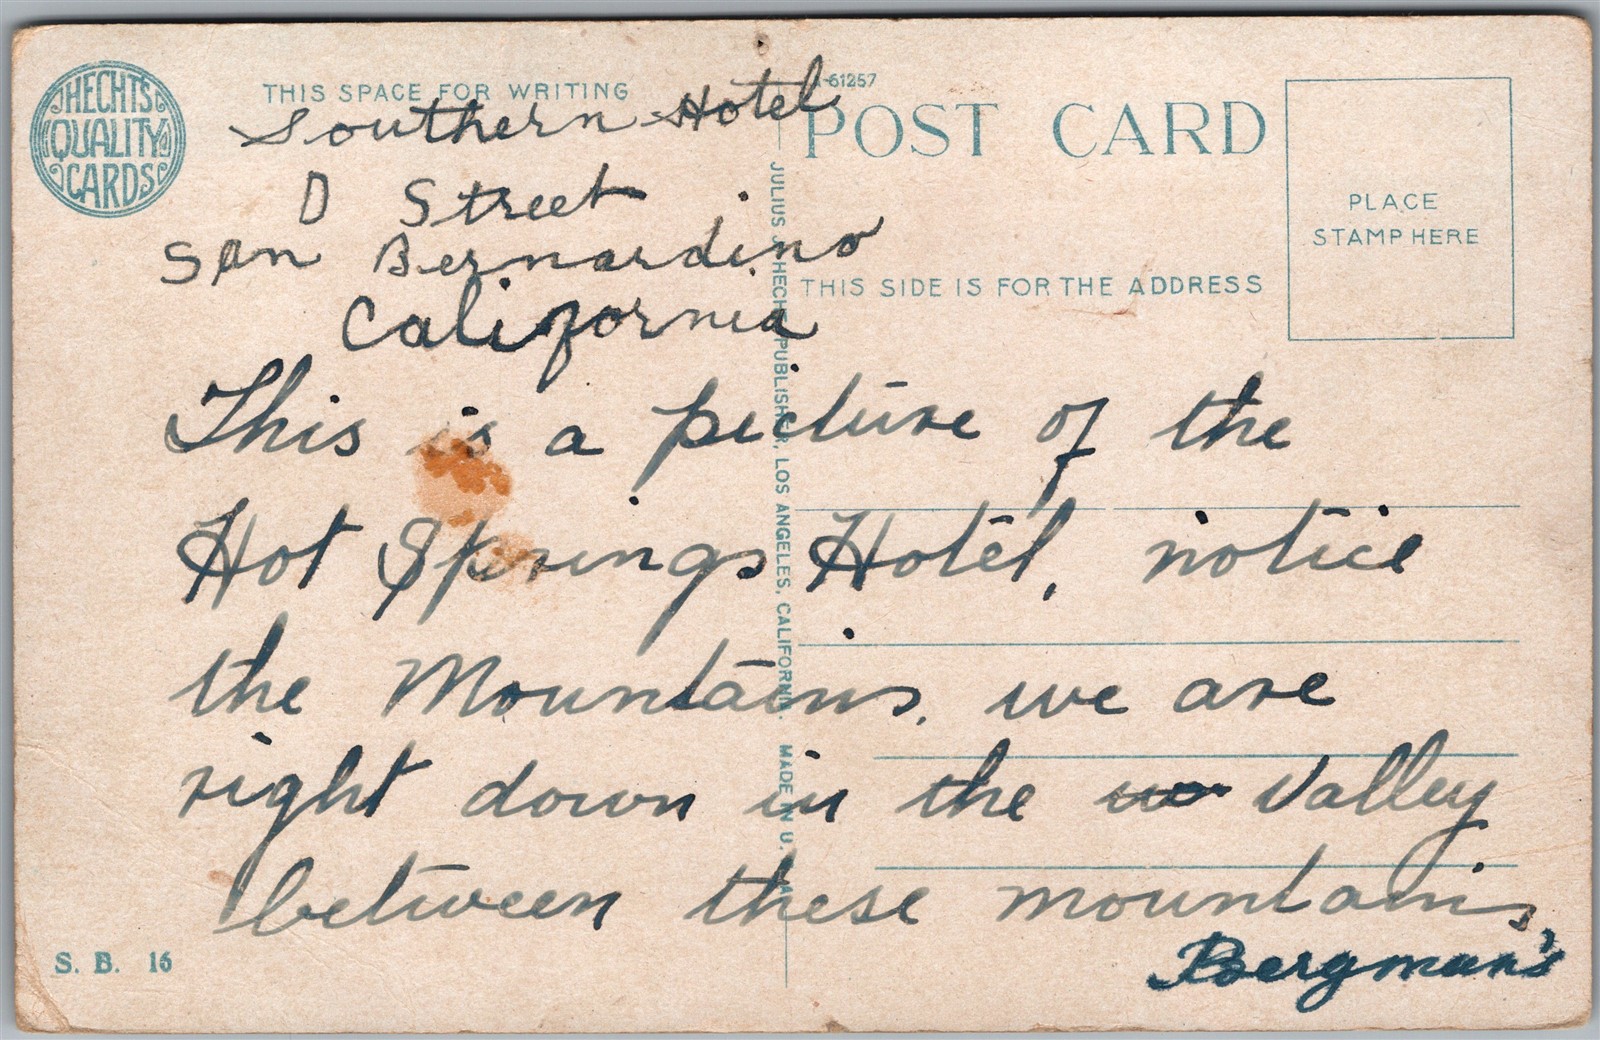 HECHTS
QUALITY
CARDS
THIS SPACE FOR WRITING
Southern Hotel
D Street
San Bernardino
California
61257
POST CARD
PLACE
STAMP HERE
THIS SIDE IS FOR THE ADDRESS
JULIUS J. HECHT, PUBLISHER, LOS ANGELES, CALIFORNIA. MADE IN U.
This is a picture of the
Hot Springs Hotel, notice
the Mountains, we are
right down in the Valley
between these mountains,
Bergman's
S. B. 16